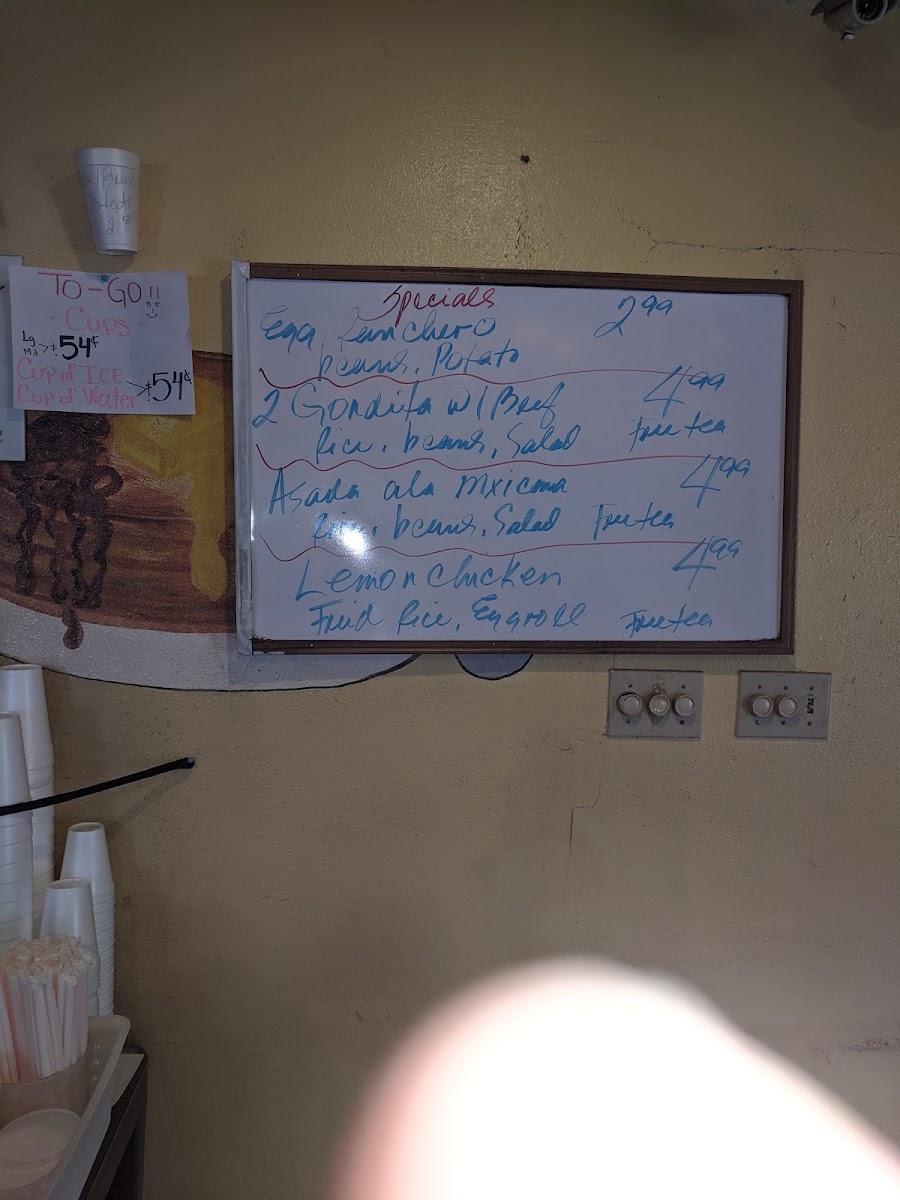 TO-GO!!
Cups
Lg
Md > $.54¢
Cup of ICE
Cup of Water > $.54¢
Specials
Egg Ranchero 2.99
beans, Potato
2 Gordita w/ Beef 4.99
Rice, beans, Salad Free tea
Asada ala Mxicana 4.99
Rice, beans, Salad Free tea
Lemon chicken 4.99
Fried Rice, Eggroll Free tea